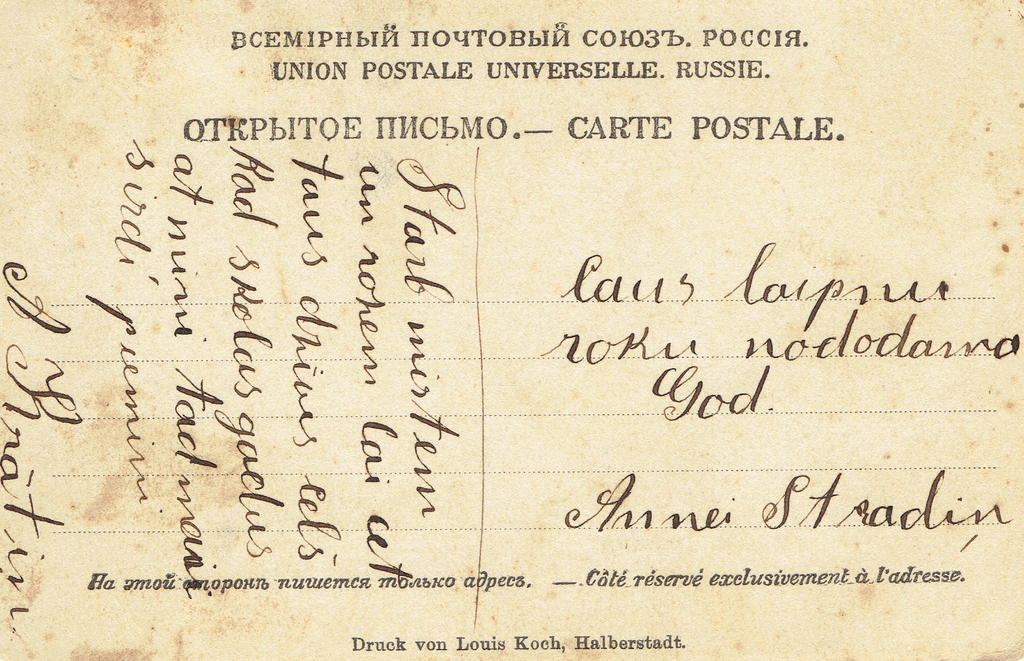 ВСЕМІРНЫЙ ПОЧТОВЫЙ СОЮЗЪ. РОССІЯ.
UNION POSTALE UNIVERSELLE. RUSSIE.
ОТКРЫТОЕ ПИСЬМО.— CARTE POSTALE.
Starb mirtem
un rozem lai eet
taus dzives zels
Kad skolas gadus
at mini tad man
sirdí piemini
A Krātin
Caus laipnu
roku nododama
God.
Annei Stradiņ
На этой сторонѣ пишется только адресъ. — Côté réservé exclusivement à l'adresse.
Druck von Louis Koch, Halberstadt.